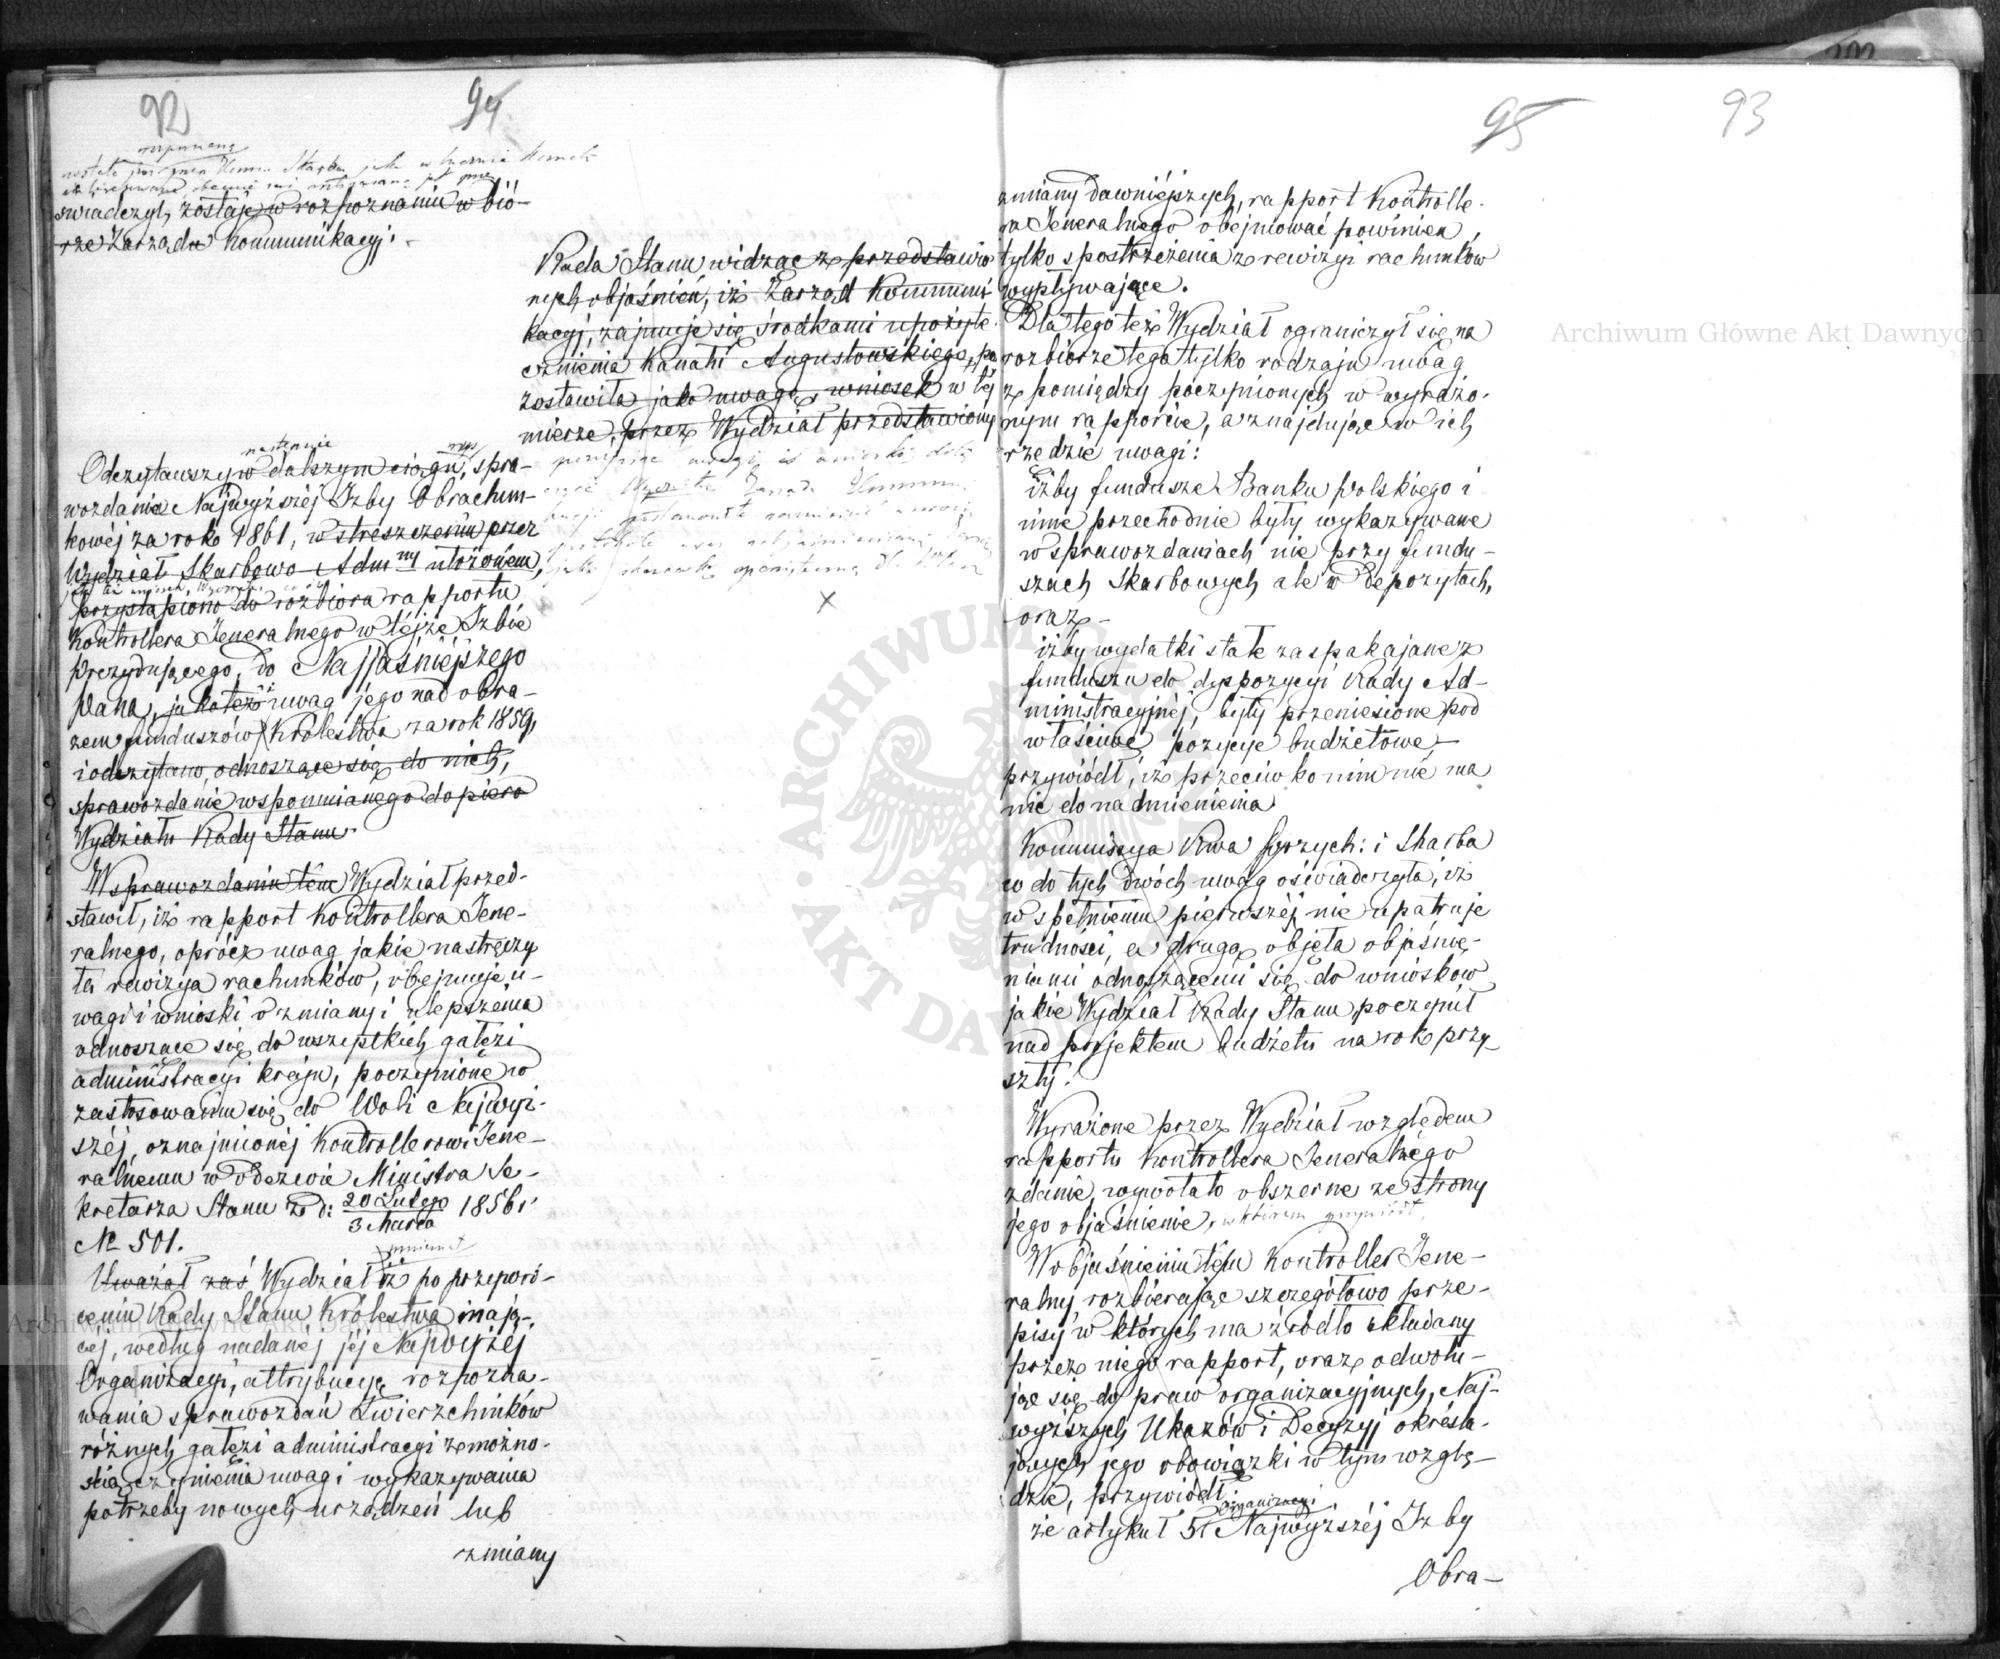 92
94
świadczył, zostaje w rozpoznaniu w bió-
rze Zarządu Kommunikacyj.
Rada Stanu widząc z przedstawio-
nych objaśnień, iż Zarząd Kommuni-
kacyj, zajmuje się środkami upożyte-
cznienia Kanału Augustowskiego, po-
zostawiła jako uwagę, wniosek w tej
mierze, przez Wydział przedstawiony
następnie
Odczytawszy w dalszym ciągu, spra-
wozdanie Najwyższéj Izby Obrachun-
kowéj za rok 1861, w streszczeniu przez
Wydział Skarbowo-Adm.ny ułożoném,
przystąpiono do rozbioru rapportu
Kontrollera Jeneralnego w téjże Izbie
Prezydującego, do Najjaśniejszego
Pana, jakoteż uwag jego nad obra-
zem funduszów Królestwa za rok 1859,
i odczytano, odnoszące się do nich,
sprawozdanie wspomnianego dopiéro
Wydziału Rady Stanu.
W sprawozdaniu tém Wydział przed-
stawił, iż rapport Kontrollera Jene-
ralnego, oprócz uwag jakie nastręczy-
ła rewizya rachunków, obejmuje u-
wagi i wnioski o zmiany i ulepszenia
odnoszące się do wszystkich gałęzi
administracyi kraju, poczynione w
zastosowaniu się do Woli Najwyż-
széj, oznajmionéj Kontrollerowi Jene-
ralnemu w odezwie Ministra Se-
kretarza Stanu z d: 20 Lutego / 3 Marca 1856 r.
No 501.
mniemał
Uważał zaś Wydział iż po przywró-
ceniu Rady Stanu Królestwa mają-
céj, według nadanéj jéj Najwyżéj
Organizacyi, attrybucyę rozpozna-
wania sprawozdań Zwierzchników
różnych gałęzi administracyi z możno-
ścią czynienia uwag i wykazywania
potrzeby nowych urządzeń lub
zmiany
95
93
zmiany dawniejszych, rapport Kontrolle-
ra Jeneralnego obejmować powinien,
tylko spostrzeżenia z rewizyi rachunków
wypływające.
Dla tego też Wydział ograniczył się na
rozbiorze tego tylko rodzaju uwag
z pomiędzy poczynionych w wyrażo-
nym rapporcie, a znajdujące w ich
rzędzie uwagi:
iżby fundusze Banku Polskiego i
inne przechodnie były wykazywane
w sprawozdaniach nie przy fundu-
szach Skarbowych ale w depozytach,
oraz
iżby wydatki stałe zaspakajane z
funduszu do dyspozycyi Rady Ad-
ministracyjnéj, były przeniesione pod
właściwe pozycye budżetowe,
przywiódł, iż przeciwko nim nie ma
nic do nadmienienia
Kommissya Rwa Przych: i Skarbu
w do tych dwóch uwag oświadczyła, iż
w spełnieniu pierwszéj nie upatruje
trudności, a drugą objęła objaśnie-
niami odnoszącemi się do wniosków
jakie Wydział Rady Stanu poczynił
nad projektem budżetu na rok przy-
szły.
Wyrażone przez Wydział względem
rapportu Kontrollera Jeneralnego
zdanie, wywołało obszerne ze strony
jego objaśnienie, w którem przywiódł,
W objaśnieniu tém Kontroller Jene-
ralny, rozbierając szczegółowo prze-
pisy w których ma źródło składany
przez niego rapport, oraz odwołu-
jąc się do praw organizacyjnych, Naj-
wyższych Ukazów i Decyzyj określa-
jących jego obowiązki w tym wzglę-
dzie, przywiódł:
organizacyi
że artykuł 51 Najwyższéj Izby
Obra-
ARCHIWUM GŁÓWNE AKT DAWNYCH
Archiwum Główne Akt Dawnych
Archiwum Główne Akt Dawnych